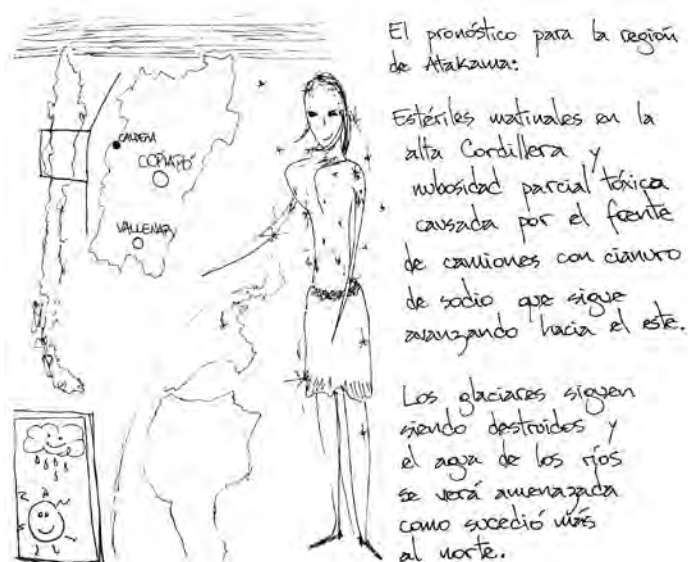 CALDERA
COPIAPÓ
VALLENAR
El pronóstico para la región
de Atakama:
Estériles matinales en la
alta Cordillera y
nubosidad parcial tóxica
causada por el frente
de camiones con cianuro
de sodio que sigue
avanzando hacia el este.
Los glaciares siguen
siendo destruidos y
el agua de los ríos
se verá amenazada
como sucedió más
al norte.